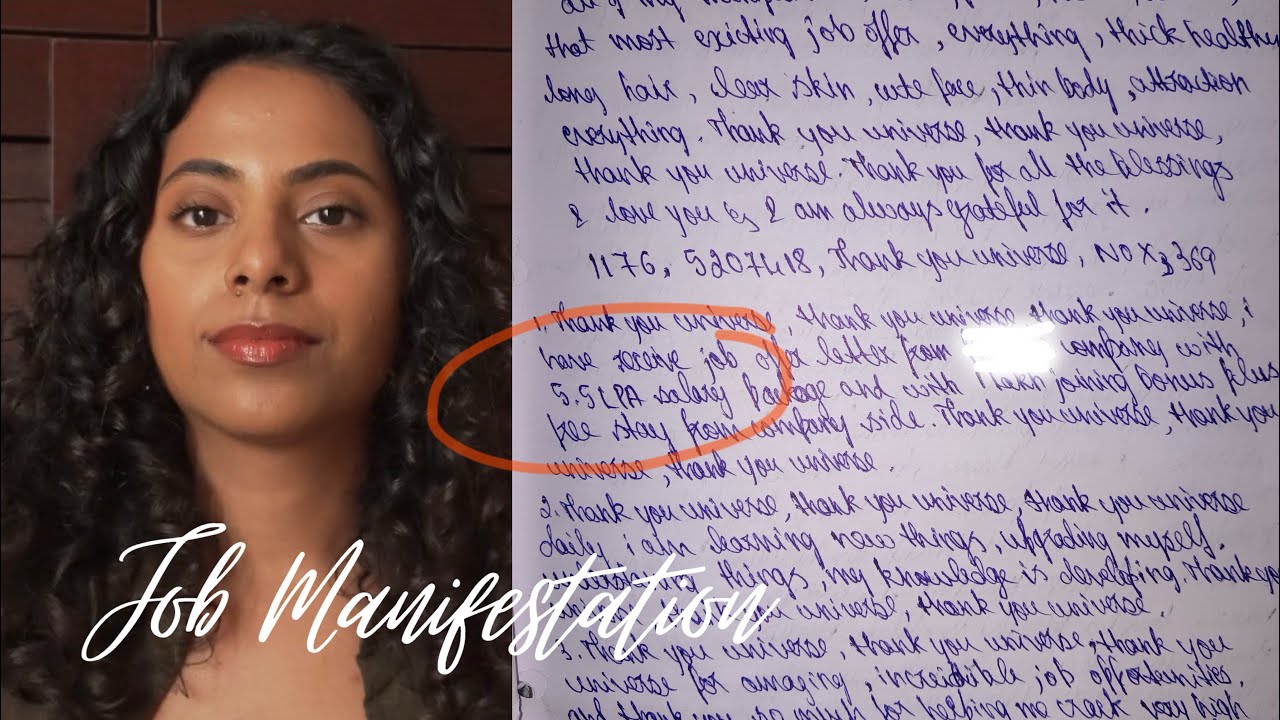 all of my
that most exicting job offer, everything, thick healthy
long hair, clear skin, cute face, thin body, attraction
everything. Thank you universe, thank you universe,
thank you universe. Thank you for all the blessings
I love you & I am always grateful for it.
1176, 5207418, Thank you universe, NOX, 369
1. Thank you universe, thank you universe, thank you universe, i
have receive job offer letter from company with
5.5LPA salary package and with 1 lakh joining bonus plus
free stay from company side. Thank you universe, thank you
universe, thank you universe.
2. Thank you universe, thank you universe, thank you universe
daily i am learning new things, upgrading myself.
things, my knowledge is developing. Thank you
universe, thank you universe.
3. Thank you universe, thank you universe, thank you
universe for amazing, increditible job opportunities,
and thank you so much for helping me crack very high
Job Manifestation